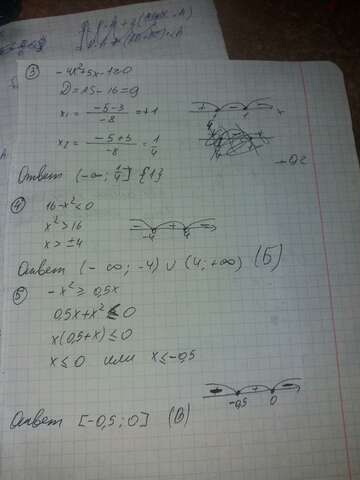 ③ -4x²+5x-1≥0
D=25-16=9
x₁ = (-5-3)/(-8) = +1
+ - -
1 x
x₂ = (-5+3)/(-8) = 1/4
Ответ (-∞; 1/4] {1}
④ 16-x²<0
x²>16
x>±4
- + -
-4 4
Ответ (-∞; -4) ∪ (4; +∞) (Б)
⑤ -x² ≥ 0,5x
0,5x+x² ≤ 0
x(0,5+x) ≤ 0
x ≤ 0 или x ≤ -0,5
- + -
-0,5 0
Ответ [-0,5; 0] (В)